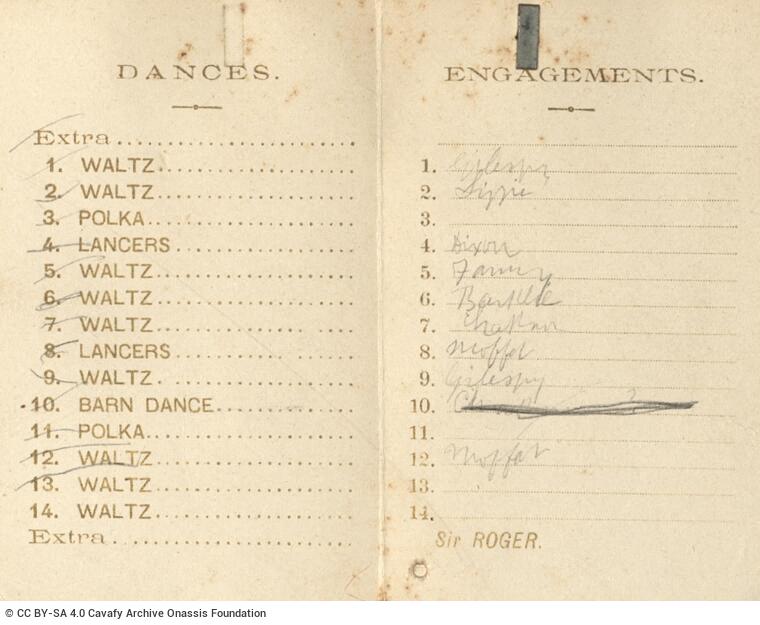 DANCES.
Extra
1. WALTZ
2. WALTZ
3. POLKA
4. LANCERS
5. WALTZ
6. WALTZ
7. WALTZ
8. LANCERS
9. WALTZ
10. BARN DANCE
11. POLKA
12. WALTZ
13. WALTZ
14. WALTZ
Extra
ENGAGEMENTS.
1. Gilespy
2. Lizzie
3.
4. Dixon
5. Fanny
6.
7.
8. Moffat
9. Gilespy
10.
11.
12. Moffat
13.
14.
Sir ROGER.
© CC BY-SA 4.0 Cavafy Archive Onassis Foundation